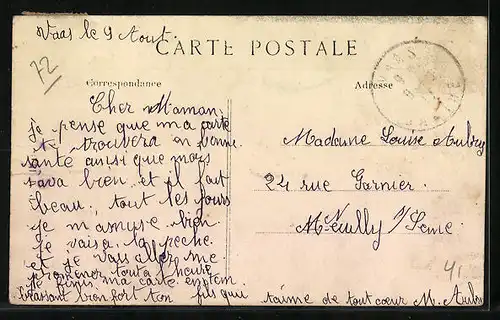 Vaas le 9 Aout.
72
CARTE POSTALE
Correspondance
Adresse
Cher Maman
je pense que ma carte
te trouvera en bonne
santé ausi que mois
sava bien et il fait
beau, tout les jours
je m'amuse bien
je vais a la peche.
et je vais aller me
promener tout a l'heure
je finis ma carte en
t'embrassant bien fort ton fils qui t'aime de tout cœur M. Aubry
Madame Louise Aubry
24 rue Garnier.
Neuilly s/ Seine
41